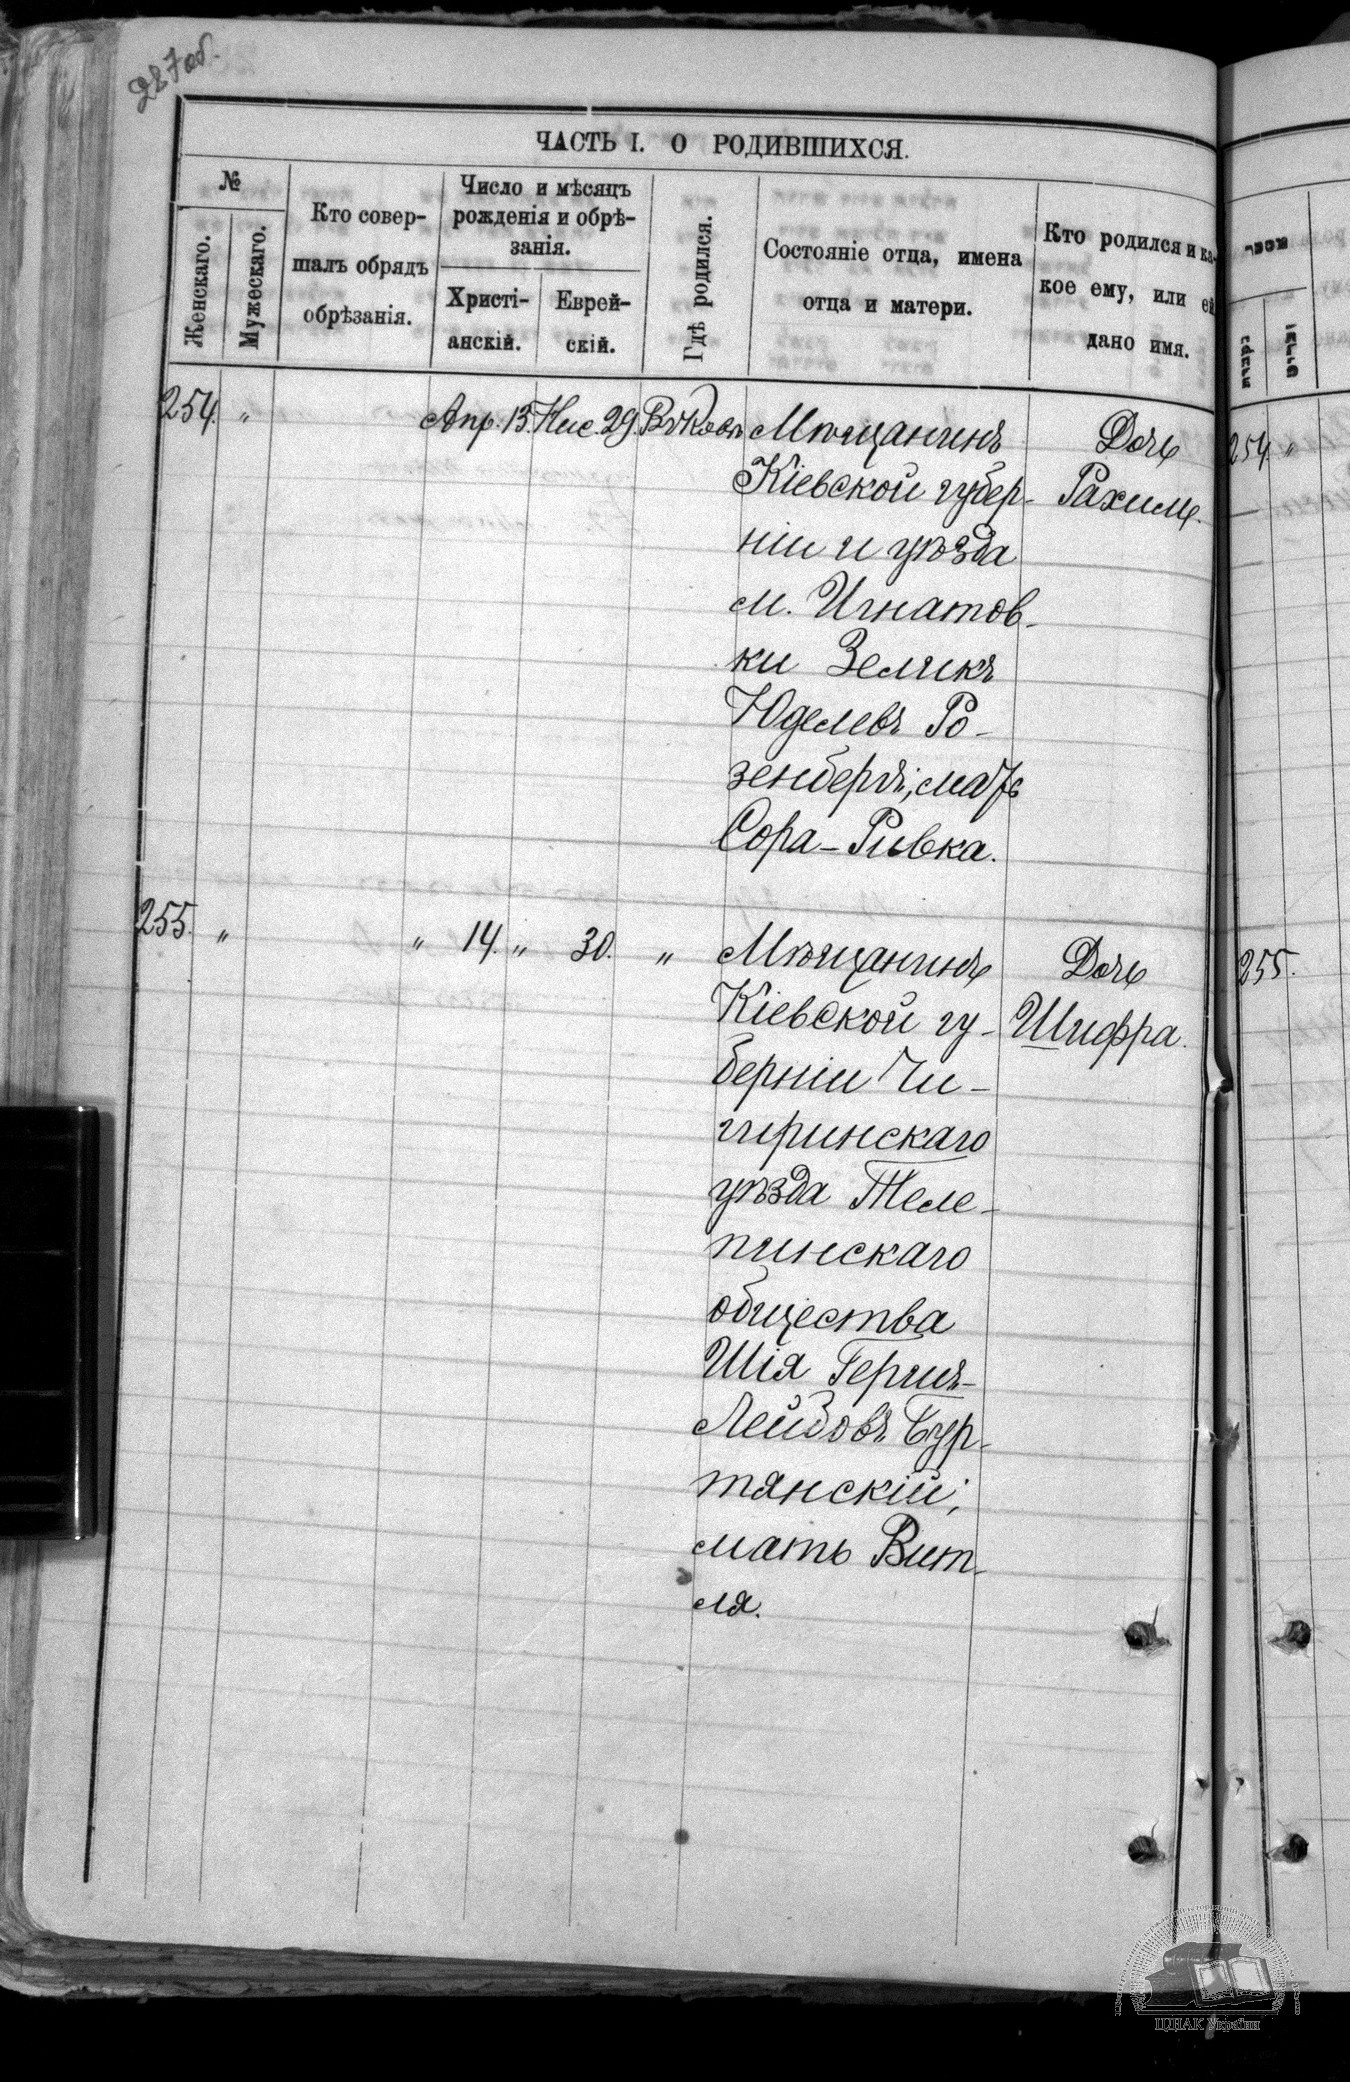 287 об.
ЧАСТЬ I. О РОДИВШИХСЯ.
№
Женскаго.
Мужескаго.
Кто совер-
шалъ обрядъ
обрѣзанія.
Число и мѣсяцъ
рожденія и обрѣ-
занія.
Христі-
анскій.
Еврей-
скій.
Гдѣ родился.
Состояніе отца, имена
отца и матери.
Кто родился и ка-
кое ему, или ей
дано имя.
254. " Апр. 13. Нис. 29. Мѣщанинъ
Кіевской губер-
ніи и уѣзда
м. Игнатов-
ки Зеликъ
Юделевъ Ро-
зенбергъ, мать
Сора-Ривка.
Дочь
Рахиль.
255. " " 14. " 30. " Мѣщанинъ
Кіевской гу-
берніи Чи-
гиринскаго
уѣзда Теле-
пинскаго
общества
Шія Гершъ-
Лейбовъ Бур-
тянскій;
мать Вит-
ля.
Дочь
Шифра.
מספר
נקבות
זכרים
254. "
255.
ЦДІАК України